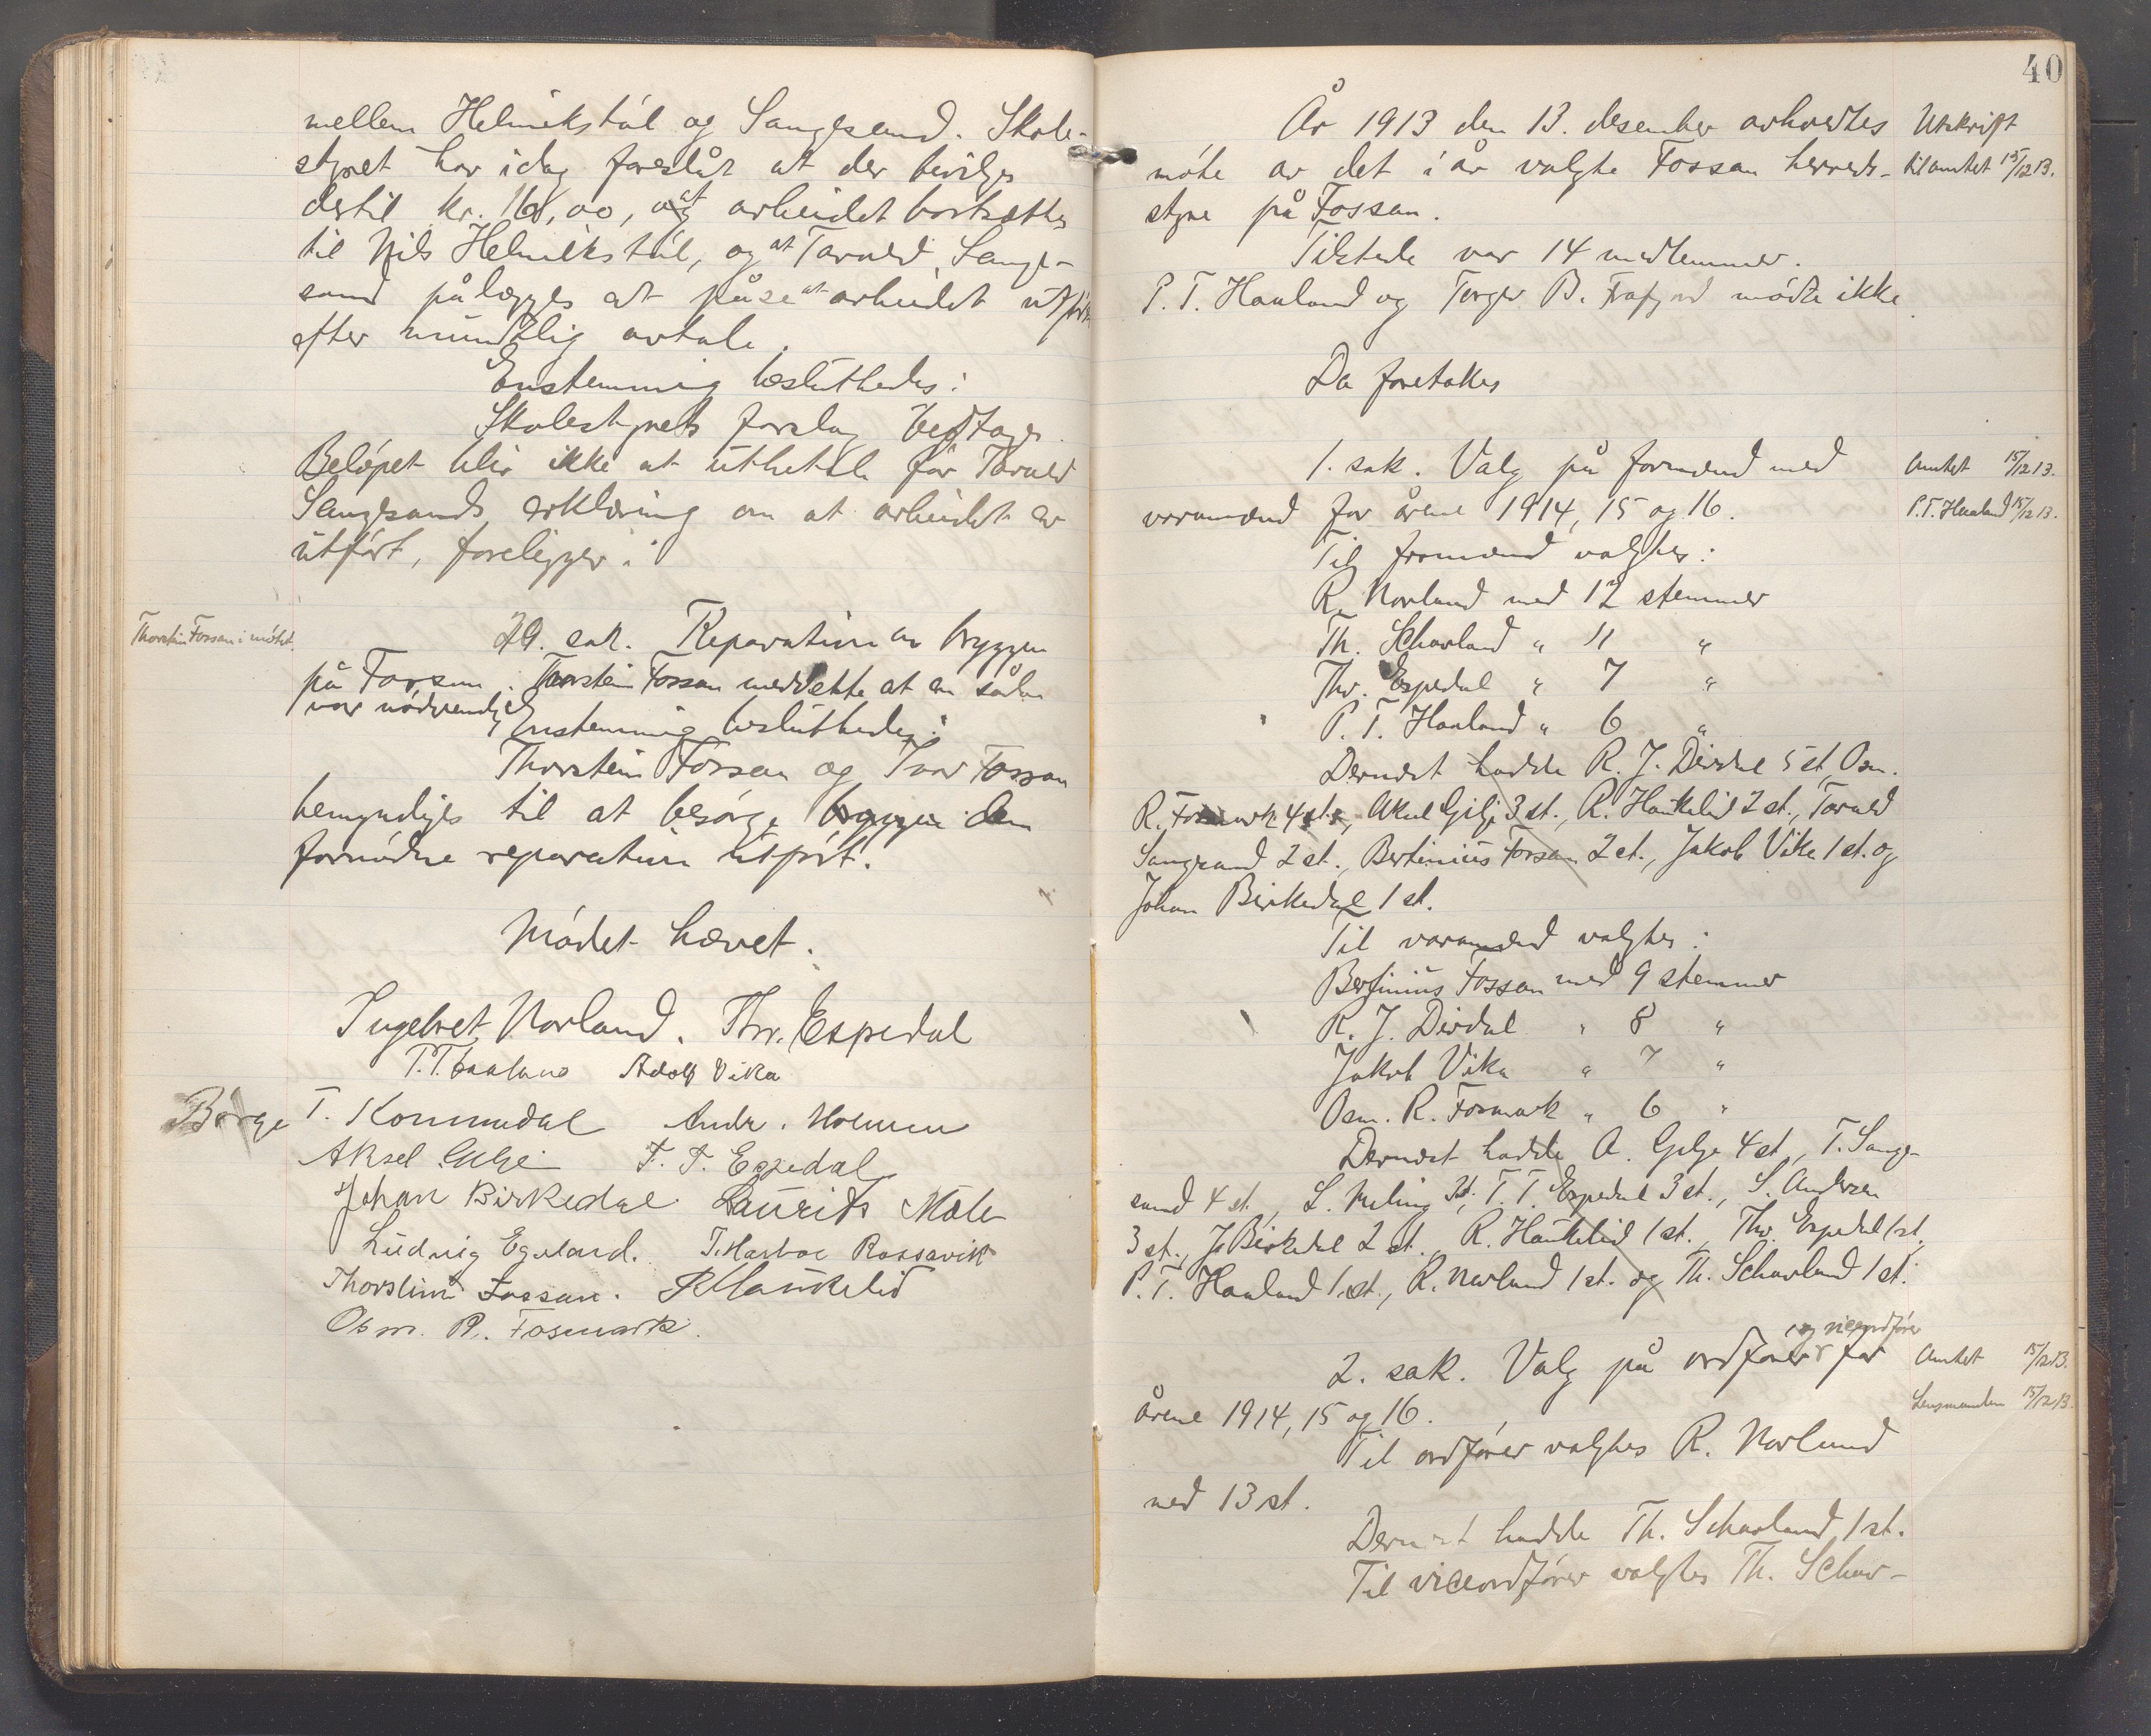 mellem Helmikstøl og Sangesand. Skole-
styret har idag foreslåt at der bevilges
dertil kr. 160,00, at arbeidet bortsættes
til Nils Helmikstøl, og at Tarald Sange-
sand pålægges at påse at arbeidet utført
efter mundtlig avtale.
Enstemmig besluttedes:
Skolestyrets forslag vedtages.
Beløpet blir ikke at utbetale før Tarald
Sangesands erklæring om at arbeidet er
utført, foreligger.
Thorstein Fossan i møtet.
29. sak. Reparation av bryggen
på Fossan. Thorstein Fossan meddelte at en sådan
var nødvendig
Enstemmig besluttedes:
Thorstein Fossan og Ivar Fossan
bemyndiges til at besørge bryggen den
fornødne reparation utført.
Mødet hævet.
Ingebret Norland. Thv. Espedal
P.T. Haaland Adolf Vika
Børge T. Kommedal Andr. Holmen
Aksel Gilje T. T. Espedal
Johan Birkedal Laurits Mæle
Ludvig Egeland. T. Harboe Rossavik
Thorstein Fossan. R Haukelid
Osm. R. Fosmark.
40
År 1913 den 13. desember avholdtes
møte av det i år valgte Fossan herreds-
styre på Fossan.
Utskrift
til amtet 15/12 13.
Tilstede var 14 medlemmer.
P. T. Haaland og Torger B. Frafjord mødte ikke.
Da foretokes
1. sak. Valg på formænd med
varamænd for årene 1914, 15 og 16.
Amtet 15/12 13.
P.T. Haaland 15/12 13.
Til formænd valgtes:
R. Norland med 12 stemmer
Th. Schavland " 11 "
Thv. Espedal " 7 "
P. T. Haaland " 6 "
Dernæst hadde R. J. Dirdal 5 st, Osm.
R. Fosmark 4 st., Aksel Gilje 3 st., R. Haukelid 2 st., Tarald
Sangesand 2 st., Bertinius Fossan 2 st., Jakob Vika 1 st. og
Johan Birkedal 1 st.
Til varamænd valgtes:
Bertinius Fossan med 9 stemmer
R. J. Dirdal " 8 "
Jakob Vika " 7 "
Osm. R. Fosmark " 6 "
Dernæst hadde A. Gilje 4 st., T. Sange-
sand 4 st., L. Meling 3 st., T. T. Espedal 3 st., S. Andersen
3 st., J. Birkedal 2 st., R. Haukelid 1 st., Thv. Espedal 1 st.,
P. T. Haaland 1 st., R. Norland 1 st. og Th. Schavland 1 st.
og viceordfører
2. sak. Valg på ordfører for
årene 1914, 15 og 16.
Amtet 15/12 13.
Lensmanden 15/12 13.
Til ordfører valgtes R. Norland
med 13 st.
Dernæst hadde Th. Schavland 1 st.
Til viceordfører valgtes Th. Schav-